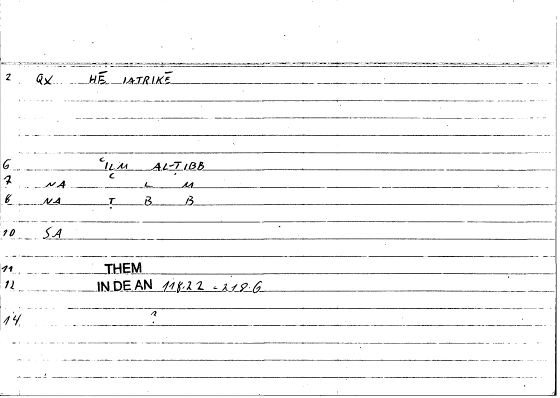 2 QX HĒ IATRIKĒ
6 ʿILM AL-ṬIBB
7 NA ʿ L M
8 NA Ṭ B B
10 SA
11 THEM
12 IN DE AN 118.22 - 219.6
14